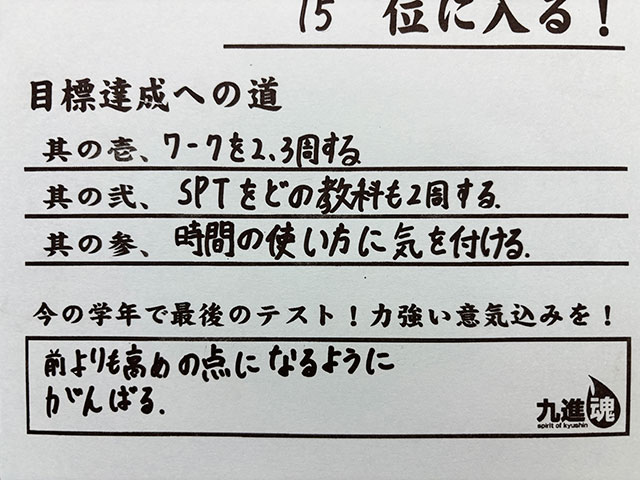 15 位に入る！
目標達成への道
其の壱、ワークを2、3周する
其の弐、SPTをどの教科も2周する.
其の参、時間の使い方に気を付ける.
今の学年で最後のテスト！力強い意気込みを！
前よりも高めの点になるように
がんばる.
九進魂
spirit of kyushin